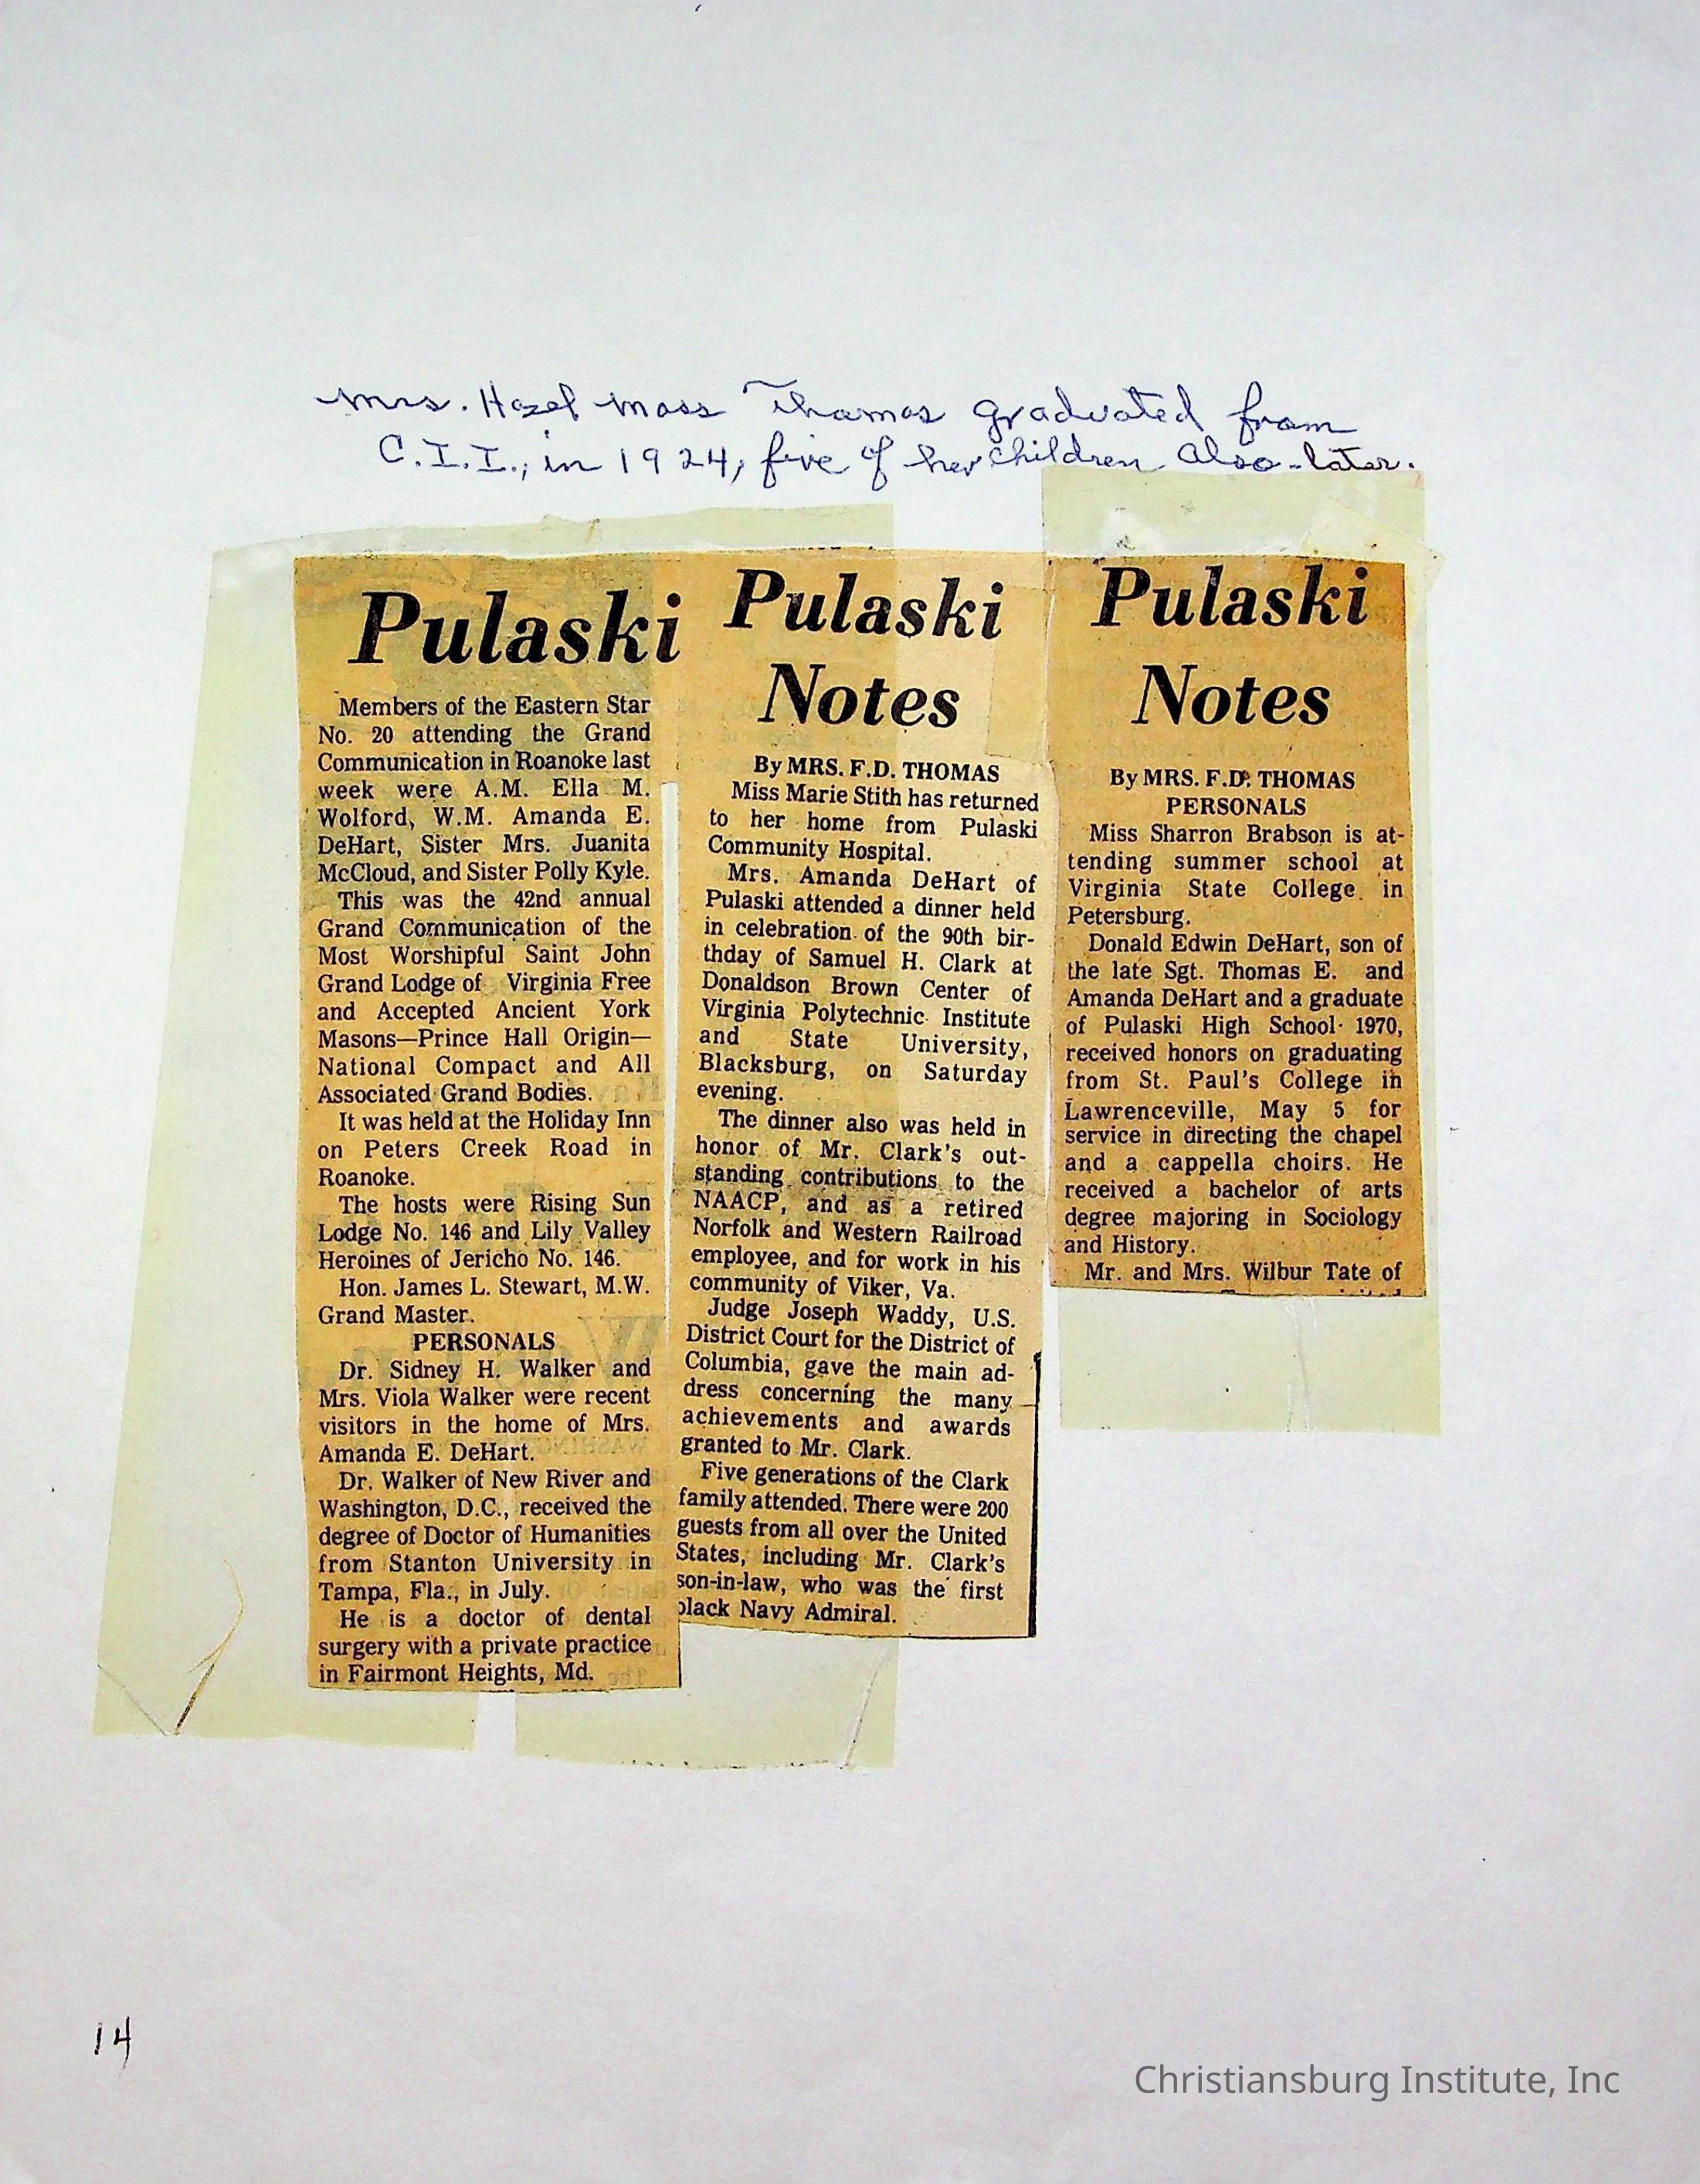 Mrs. Hazel Moss Thomas graduated from
C.I.I., in 1924, five of her children also-later.
Pulaski
Members of the Eastern Star
No. 20 attending the Grand
Communication in Roanoke last
week were A.M. Ella M.
Wolford, W.M. Amanda E.
DeHart, Sister Mrs. Juanita
McCloud, and Sister Polly Kyle.
This was the 42nd annual
Grand Communication of the
Most Worshipful Saint John
Grand Lodge of Virginia Free
and Accepted Ancient York
Masons—Prince Hall Origin—
National Compact and All
Associated Grand Bodies.
It was held at the Holiday Inn
on Peters Creek Road in
Roanoke.
The hosts were Rising Sun
Lodge No. 146 and Lily Valley
Heroines of Jericho No. 146.
Hon. James L. Stewart, M.W.
Grand Master.
PERSONALS
Dr. Sidney H. Walker and
Mrs. Viola Walker were recent
visitors in the home of Mrs.
Amanda E. DeHart.
Dr. Walker of New River and
Washington, D.C., received the
degree of Doctor of Humanities
from Stanton University in
Tampa, Fla., in July.
He is a doctor of dental
surgery with a private practice
in Fairmont Heights, Md.
Pulaski
Notes
By MRS. F.D. THOMAS
Miss Marie Stith has returned
to her home from Pulaski
Community Hospital.
Mrs. Amanda DeHart of
Pulaski attended a dinner held
in celebration of the 90th bir-
thday of Samuel H. Clark at
Donaldson Brown Center of
Virginia Polytechnic Institute
and State University,
Blacksburg, on Saturday
evening.
The dinner also was held in
honor of Mr. Clark's out-
standing contributions to the
NAACP, and as a retired
Norfolk and Western Railroad
employee, and for work in his
community of Viker, Va.
Judge Joseph Waddy, U.S.
District Court for the District of
Columbia, gave the main ad-
dress concerning the many
achievements and awards
granted to Mr. Clark.
Five generations of the Clark
family attended. There were 200
guests from all over the United
States, including Mr. Clark's
son-in-law, who was the first
black Navy Admiral.
Pulaski
Notes
By MRS. F.D. THOMAS
PERSONALS
Miss Sharron Brabson is at-
tending summer school at
Virginia State College in
Petersburg.
Donald Edwin DeHart, son of
the late Sgt. Thomas E. and
Amanda DeHart and a graduate
of Pulaski High School 1970,
received honors on graduating
from St. Paul's College in
Lawrenceville, May 5 for
service in directing the chapel
and a cappella choirs. He
received a bachelor of arts
degree majoring in Sociology
and History.
Mr. and Mrs. Wilbur Tate of
14
Christiansburg Institute, Inc